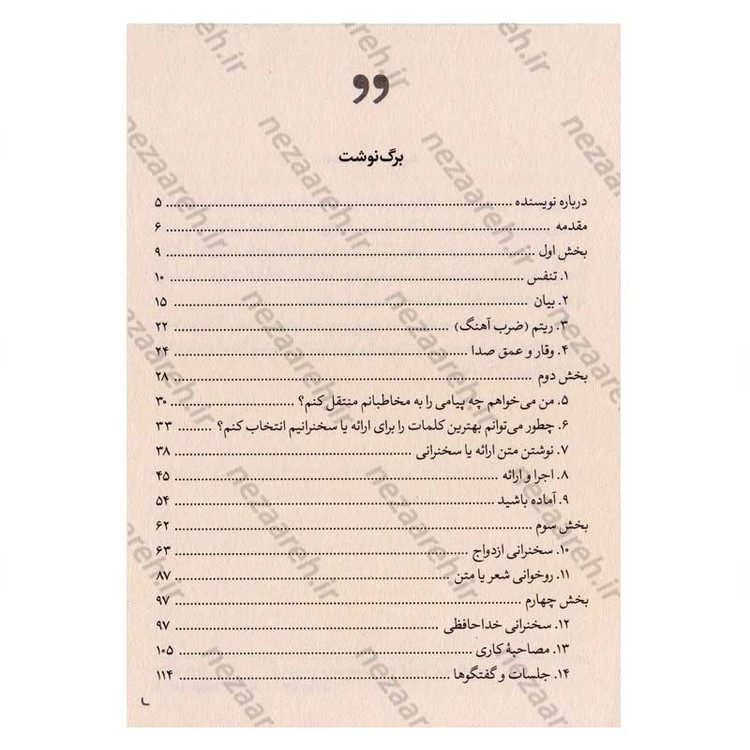 برگ‌نوشت
درباره نویسنده ........ ۵
مقدمه ........ ۶
بخش اول ........ ۹
۱. تنفس ........ ۱۰
۲. بیان ........ ۱۵
۳. ریتم (ضرب آهنگ) ........ ۲۲
۴. وقار و عمق صدا ........ ۲۴
بخش دوم ........ ۲۸
۵. من می‌خواهم چه پیامی را به مخاطبانم منتقل کنم؟ ........ ۳۰
۶. چطور می‌توانم بهترین کلمات را برای ارائه یا سخنرانیم انتخاب کنم؟ ........ ۳۳
۷. نوشتن متن ارائه یا سخنرانی ........ ۳۸
۸. اجرا و ارائه ........ ۴۵
۹. آماده باشید ........ ۵۴
بخش سوم ........ ۶۲
۱۰. سخنرانی ازدواج ........ ۶۳
۱۱. روخوانی شعر یا متن ........ ۸۷
بخش چهارم ........ ۹۷
۱۲. سخنرانی خداحافظی ........ ۹۷
۱۳. مصاحبهٔ کاری ........ ۱۰۵
۱۴. جلسات و گفتگوها ........ ۱۱۴
nezaareh.ir